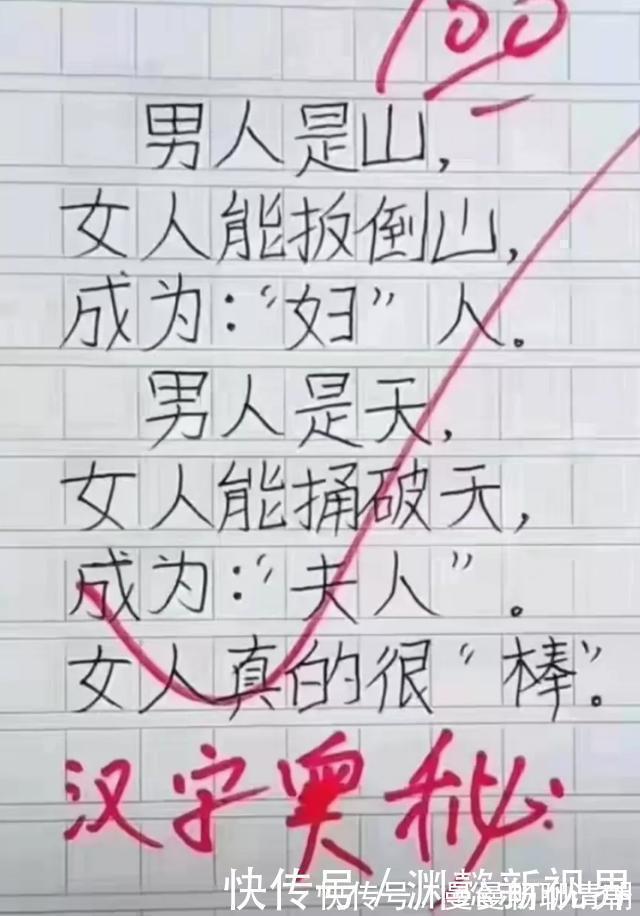 100
男人是山,
女人能扳倒山,
成为:“妇”人。
男人是天,
女人能捅破天,
成为:“夫人”。
女人真的很“棒”。
汉字奥秘
快传号/渊懿新视界
快传号/曼曼畅聊清潮